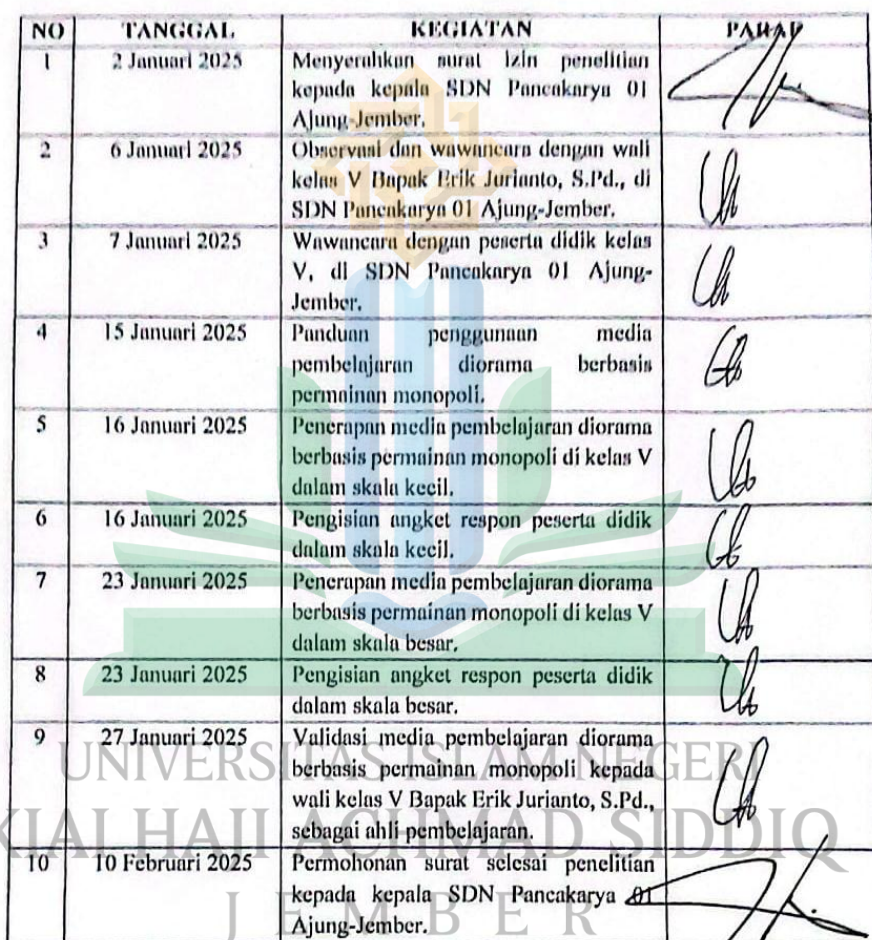 NO TANGGAL KEGIATAN PARAF
1 2 Januari 2025 Menyerahkan surat izin penelitian
kepada kepala SDN Pancakarya 01
Ajung-Jember.
2 6 Januari 2025 Observasi dan wawancara dengan wali
kelas V Bapak Erik Jurianto, S.Pd., di
SDN Pancakarya 01 Ajung-Jember.
3 7 Januari 2025 Wawancara dengan peserta didik kelas
V, di SDN Pancakarya 01 Ajung-
Jember.
4 15 Januari 2025 Panduan penggunaan media
pembelajaran diorama berbasis
permainan monopoli.
5 16 Januari 2025 Penerapan media pembelajaran diorama
berbasis permainan monopoli di kelas V
dalam skala kecil.
6 16 Januari 2025 Pengisian angket respon peserta didik
dalam skala kecil.
7 23 Januari 2025 Penerapan media pembelajaran diorama
berbasis permainan monopoli di kelas V
dalam skala besar.
8 23 Januari 2025 Pengisian angket respon peserta didik
dalam skala besar.
9 27 Januari 2025 Validasi media pembelajaran diorama
berbasis permainan monopoli kepada
wali kelas V Bapak Erik Jurianto, S.Pd.,
sebagai ahli pembelajaran.
10 10 Februari 2025 Permohonan surat selesai penelitian
kepada kepala SDN Pancakarya 01
Ajung-Jember.
UNIVERSITAS ISLAM NEGERI
KIAI HAJI ACHMAD SIDDIQ
JEMBER